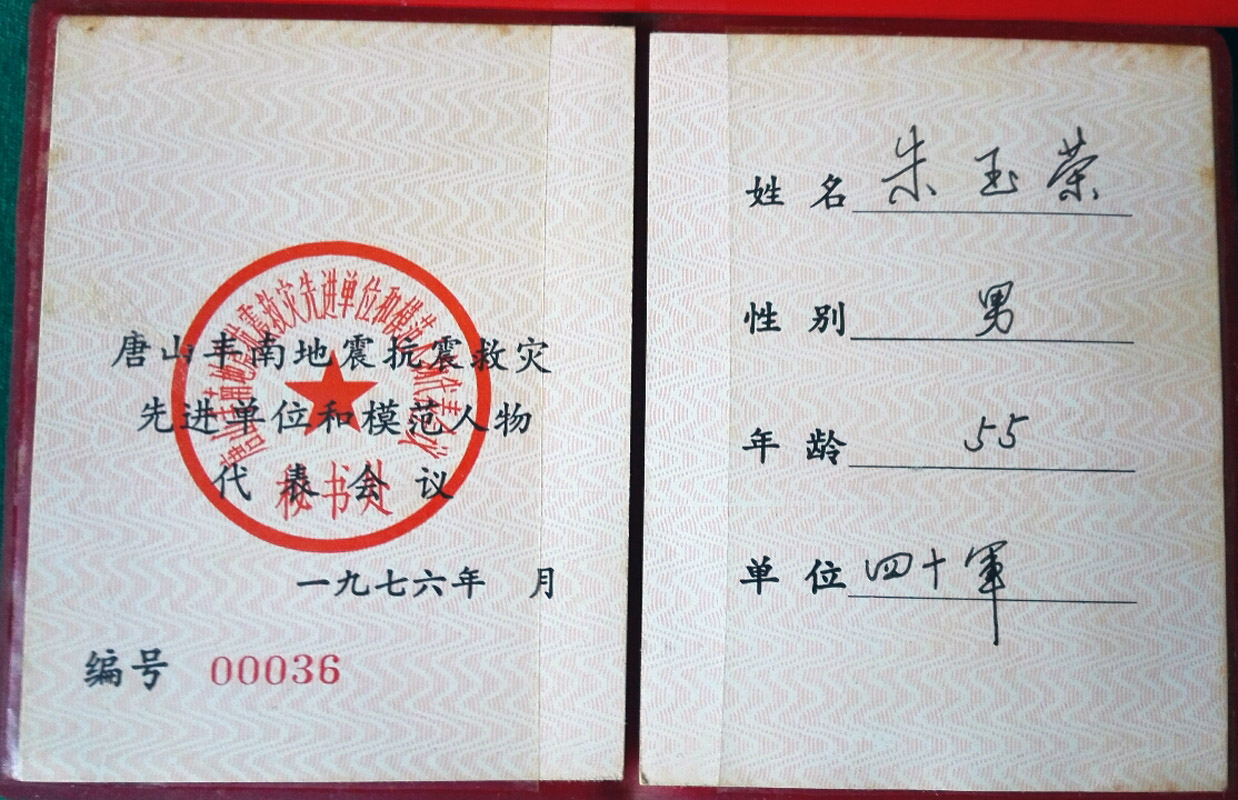 唐山丰南地震抗震救灾先进单位和模范人物代表会议
秘书处
唐山丰南地震抗震救灾
先进单位和模范人物
代表会议
一九七六年 月
编号 00036
姓名 朱玉荣
性别 男
年龄 55
单位 四十军